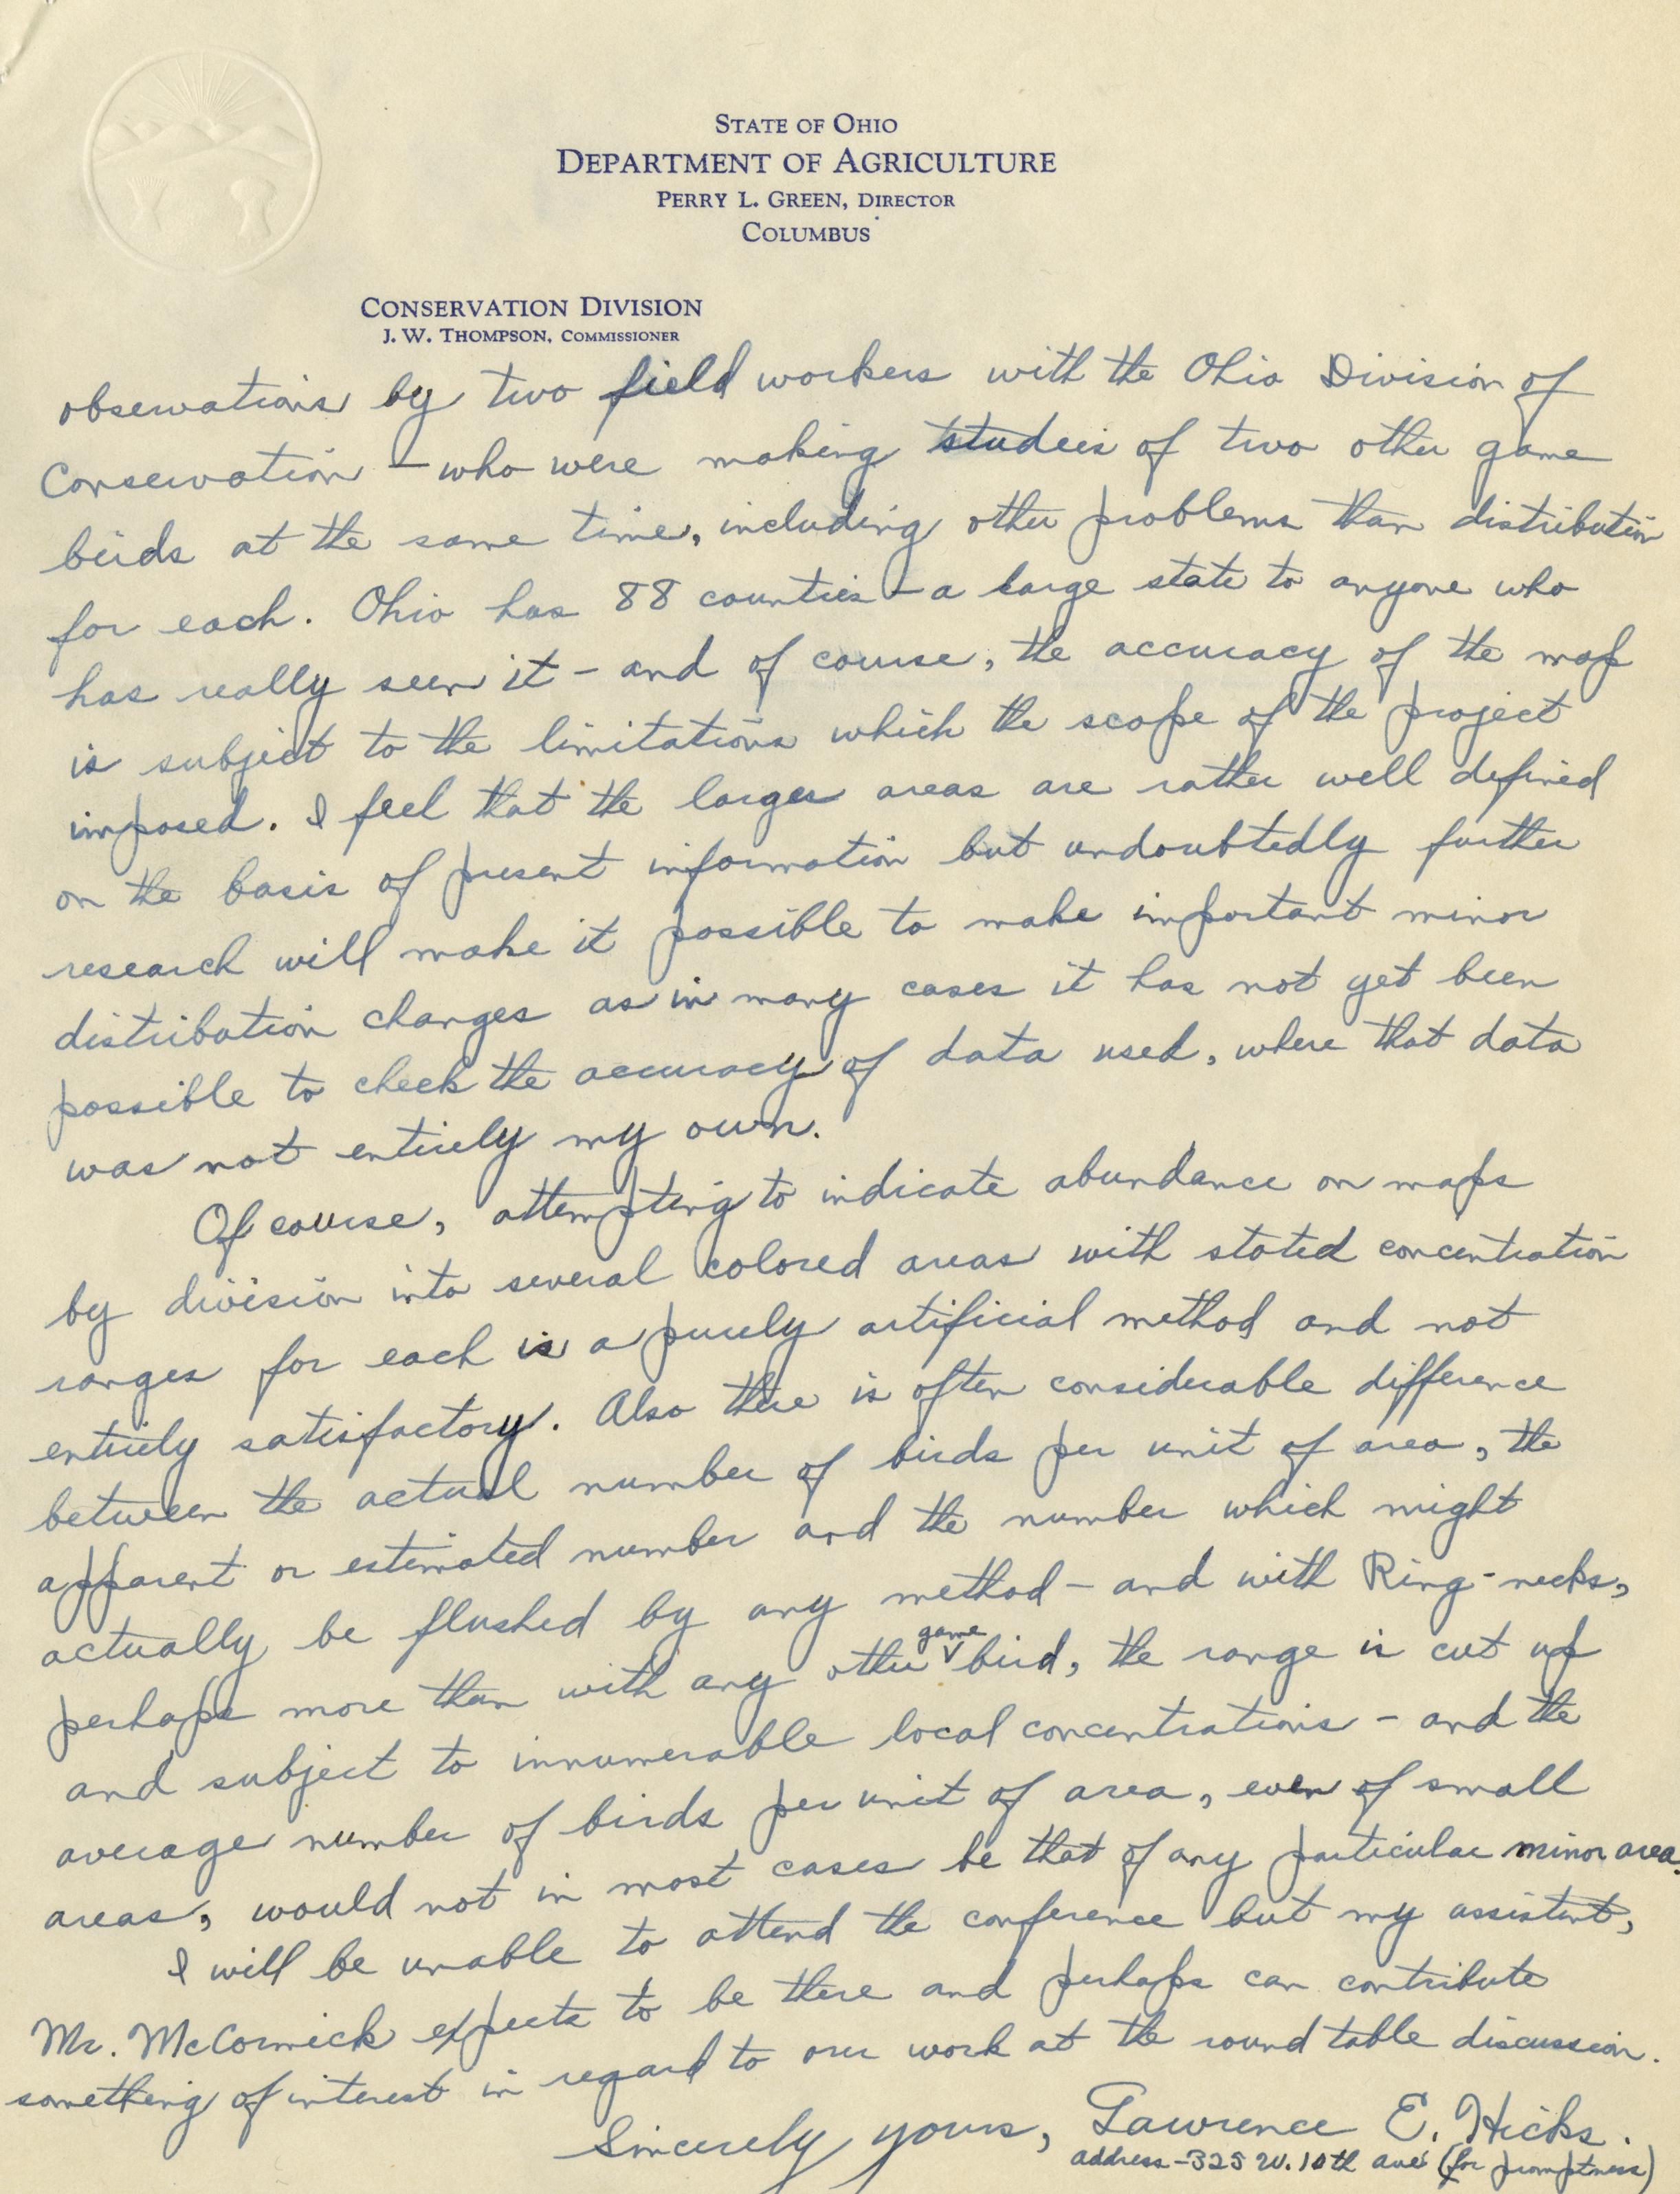 STATE OF OHIO
DEPARTMENT OF AGRICULTURE
PERRY L. GREEN, DIRECTOR
COLUMBUS
CONSERVATION DIVISION
J. W. THOMPSON, COMMISSIONER
observations by two field workers with the Ohio Division of
Conservation – who were making studies of two other game
birds at the same time, including other problems than distribution
for each. Ohio has 88 counties – a large state to anyone who
has really seen it – and of course, the accuracy of the map
is subject to the limitations which the scope of the project
imposed. I feel that the larger areas are rather well defined
on the basis of present information but undoubtedly further
research will make it possible to make important minor
distribution changes as in many cases it has not yet been
possible to check the accuracy of data used, where that data
was not entirely my own.
Of course, attempting to indicate abundance on maps
by division into several colored areas with stated concentration
ranges for each is a purely artificial method and not
entirely satisfactory. Also there is often considerable difference
between the actual number of birds per unit of area, the
apparent or estimated number and the number which might
actually be flushed by any method – and with Ring-necks,
perhaps more than with any other game bird, the range is cut up
and subject to innumerable local concentrations – and the
average number of birds per unit of area, even of small
areas, would not in most cases be that of any particular minor area.
I will be unable to attend the conference but my assistant,
Mr. McCormick expects to be there and perhaps can contribute
something of interest in regard to our work at the round table discussion.
Sincerely yours, Lawrence E. Hicks.
address – 325 W. 10th ave (for promptness)